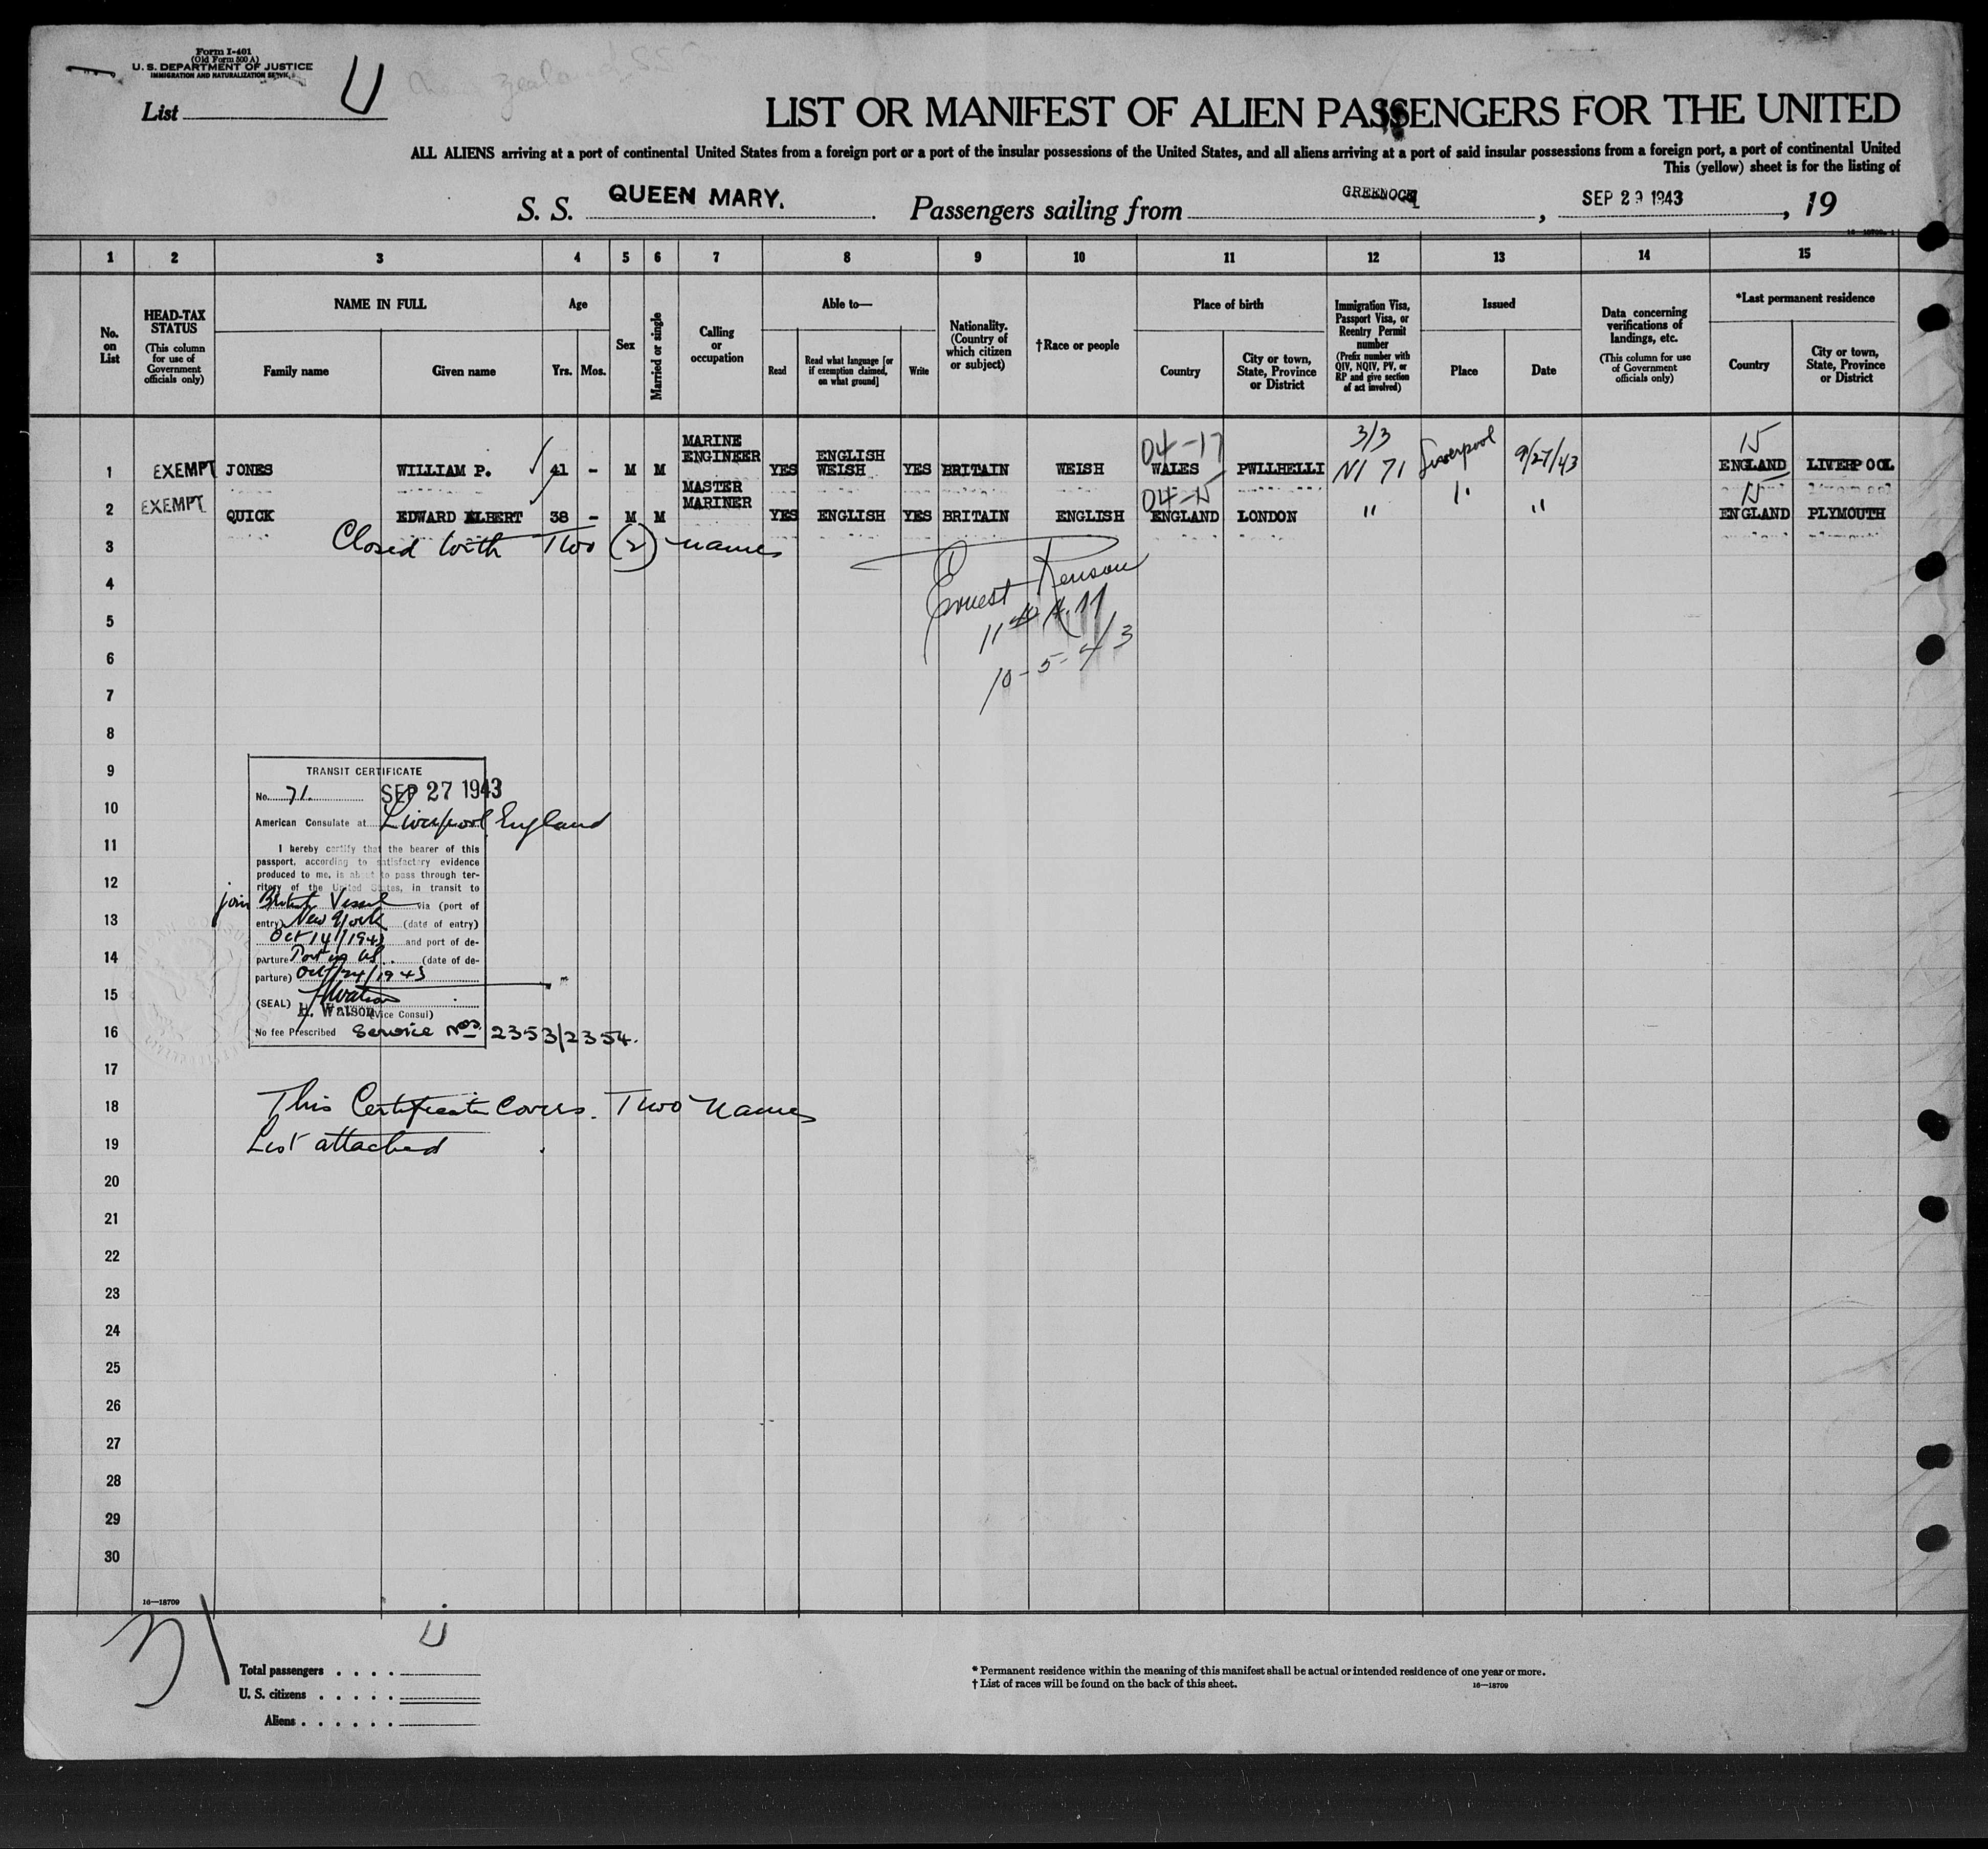 Form I-401
(Old Form 500 A)
U. S. DEPARTMENT OF JUSTICE
IMMIGRATION AND NATURALIZATION SERVICE
List U
LIST OR MANIFEST OF ALIEN PASSENGERS FOR THE UNITED
ALL ALIENS arriving at a port of continental United States from a foreign port or a port of the insular possessions of the United States, and all aliens arriving at a port of said insular possessions from a foreign port, a port of continental United
This (yellow) sheet is for the listing of
S. S. QUEEN MARY. Passengers sailing from GREENOCK, SEP 29 1943, 19
1 2 3 4 5 6 7 8 9 10 11 12 13 14 15
No. on List
HEAD-TAX STATUS
(This column for use of Government officials only)
NAME IN FULL
Family name Given name
Age
Yrs. Mos.
Sex
Married or single
Calling or occupation
Able to—
Read
Read what language [or if exemption claimed, on what ground]
Write
Nationality. (Country of which citizen or subject)
†Race or people
Place of birth
Country
City or town, State, Province or District
Immigration Visa, Passport Visa, or Reentry Permit number
(Prefix number with QIV, NQIV, PV, or RP and give section of act involved)
Issued
Place Date
Data concerning verifications of landings, etc.
(This column for use of Government officials only)
*Last permanent residence
Country
City or town, State, Province or District
04-17 3/3 15
1 EXEMPT JONES WILLIAM P. 41 - M M MARINE ENGINEER YES ENGLISH WEISH YES BRITAIN WEISH WALES PWLLHELLI NI 71 Liverpool 9/27/43 ENGLAND LIVERPOOL
04-15 15
2 EXEMPT QUICK EDWARD ALBERT 38 - M M MASTER MARINER YES ENGLISH YES BRITAIN ENGLISH ENGLAND LONDON " " " ENGLAND PLYMOUTH
3 Closed with Two (2) names
4
Ernest Renson
5
6
10-5-43
7
8
9
TRANSIT CERTIFICATE
No. 71. SEP 27 1943
10
American Consulate at Liverpool, England
11
I hereby certify that the bearer of this
passport, according to satisfactory evidence
produced to me, is about to pass through ter-
12
ritory of the United States, in transit to
join British Vessel via (port of
13
entry) New York (date of entry)
Oct 14/1943 and port of de-
14
parture Port in US. (date of de-
parture) Oct/24/1943
15
(SEAL) HWatson
H. Watson (Vice Consul)
16
No fee Prescribed Service Nos. 2353/2354.
17
18 This Certificate Covers Two Names
19 List attached
20
21
22
23
24
25
26
27
28
29
30
16—18709
31
U
Total passengers
U. S. citizens
Aliens
* Permanent residence within the meaning of this manifest shall be actual or intended residence of one year or more.
† List of races will be found on the back of this sheet.
16—18709